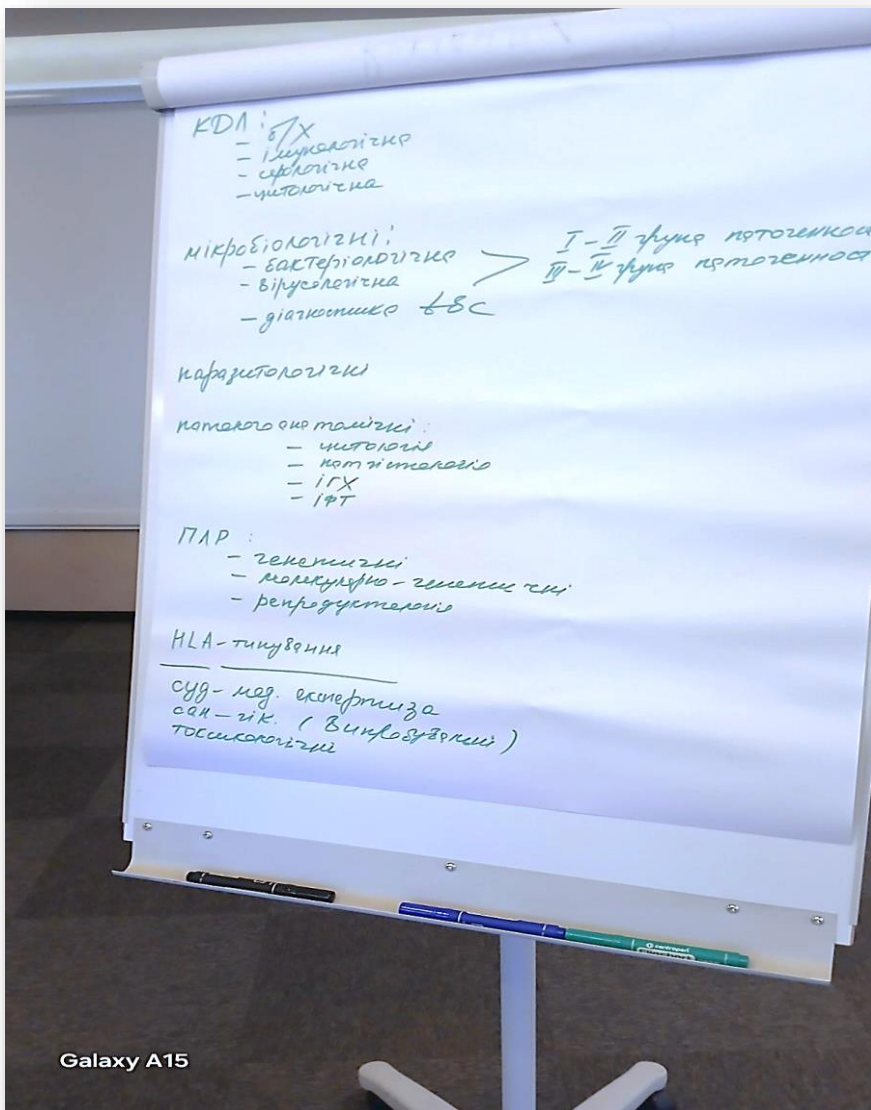 КДЛ:
- б/х
- імунологічна
- серологічна
- цитологічна
мікробіологічні:
- бактеріологічна
- вірусологічна
- діагностика tbc
I - II група патогенност
III - IV група патогенност
паразитологічні
патологоанатомічні:
- цитологія
- патгістологія
- ІГХ
- ІФТ
ПЛР:
- генетичні
- молекулярно-генетичні
- репродуктологія
HLA-типування
суд-мед. експертиза
сан-гік. (Випробувальні)
токсикологічні
centropen
Flipchart
Galaxy A15